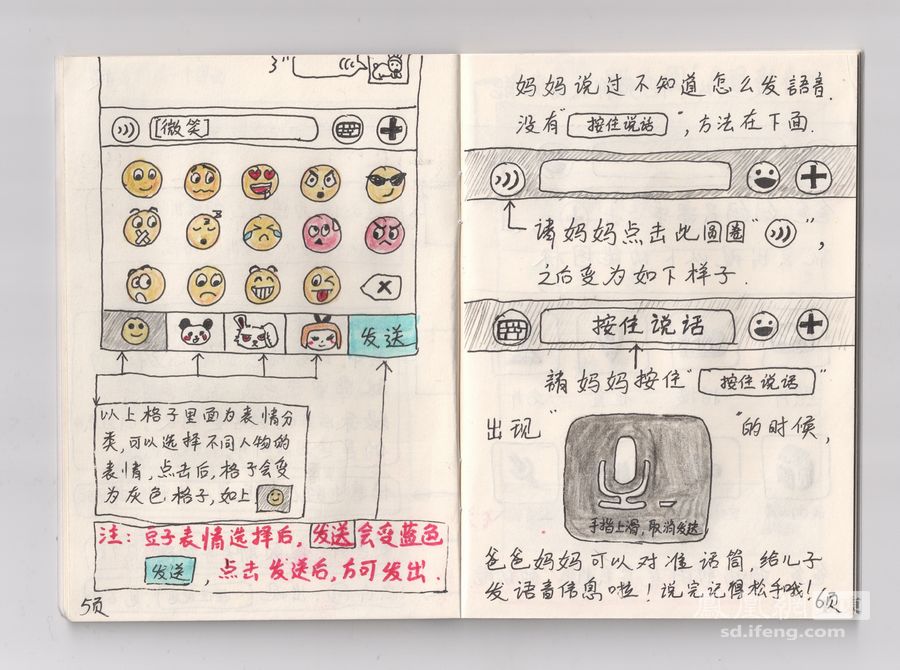 [微笑]
发送
以上格子里面为表情分
类,可以选择不同人物的
表情,点击后,格子会变
为灰色格子,如上
注:豆子表情选择后,发送会变蓝色
发送,点击发送后,方可发出.
5页
妈妈说过不知道怎么发語音.
没有"按住说话",方法在下面.
請妈妈点击此圆圈" ",
之后变为如下样子.
按住说话
請妈妈按住"按住说话"
出现" "的时候,
手指上滑,取消发送
爸爸妈妈可以对准话筒,给儿子
发语音信息啦!说完记得松手哦!
6页
sd.ifeng.com